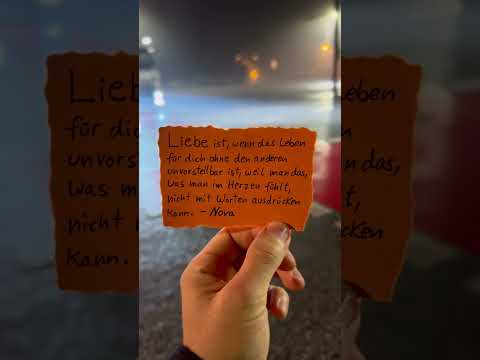 Liebe ist, wenn das Leben
für dich ohne den anderen
unvorstellbar ist, weil man das,
was man im Herzen fühlt,
nicht mit Worten ausdrücken
kann. - Nova